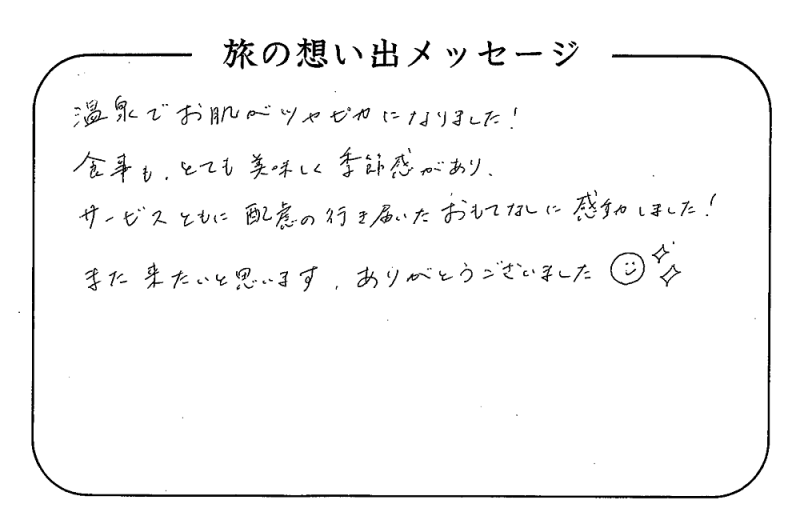 旅の想い出メッセージ
温泉でお肌がツヤピカになりました!
食事も、とても美味しく季節感があり、
サービスともに配慮の行き届いたおもてなしに感動しました!
また来たいと思います。ありがとうございました